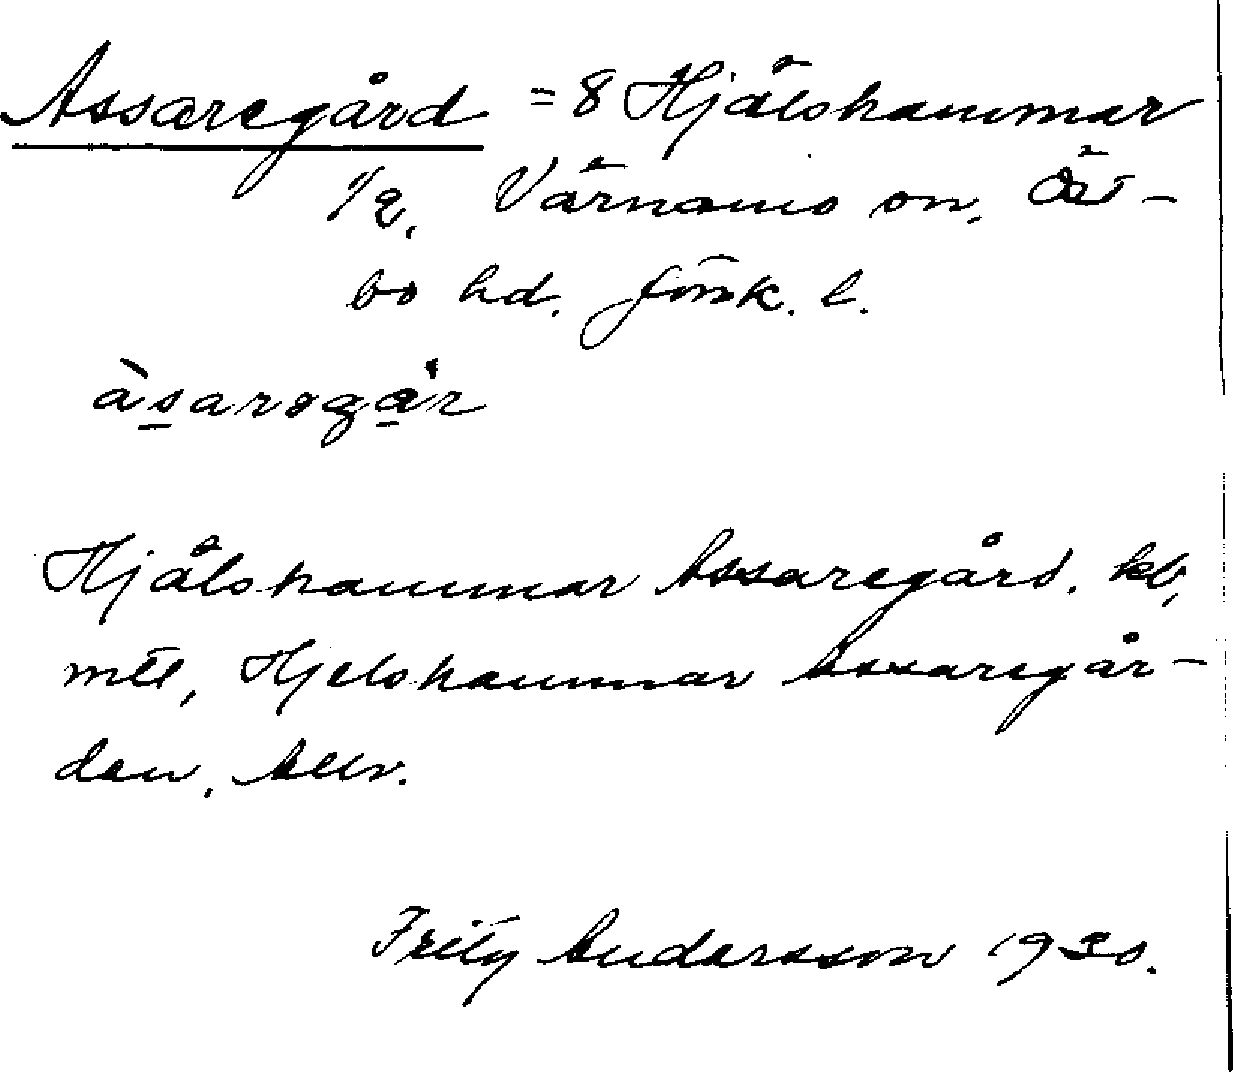 Assaregård = 8 Hjälshammar
1/2, Värnamo sn, Öst-
bo hd. Jönk. l.
àsarogår
Hjälshammar Assaregård. kb,
mtl, Hjelshammar Assaregår-
den, Allv.
Fritz Andersson 1930.